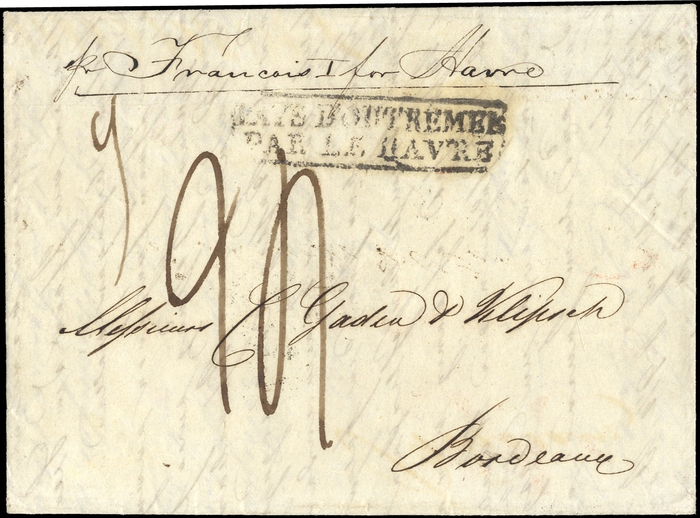 pr Francois I for Havre
PAYS D'OUTREMER
PAR LE HAVRE
Messieurs Gaden & Klipsch
Bordeaux